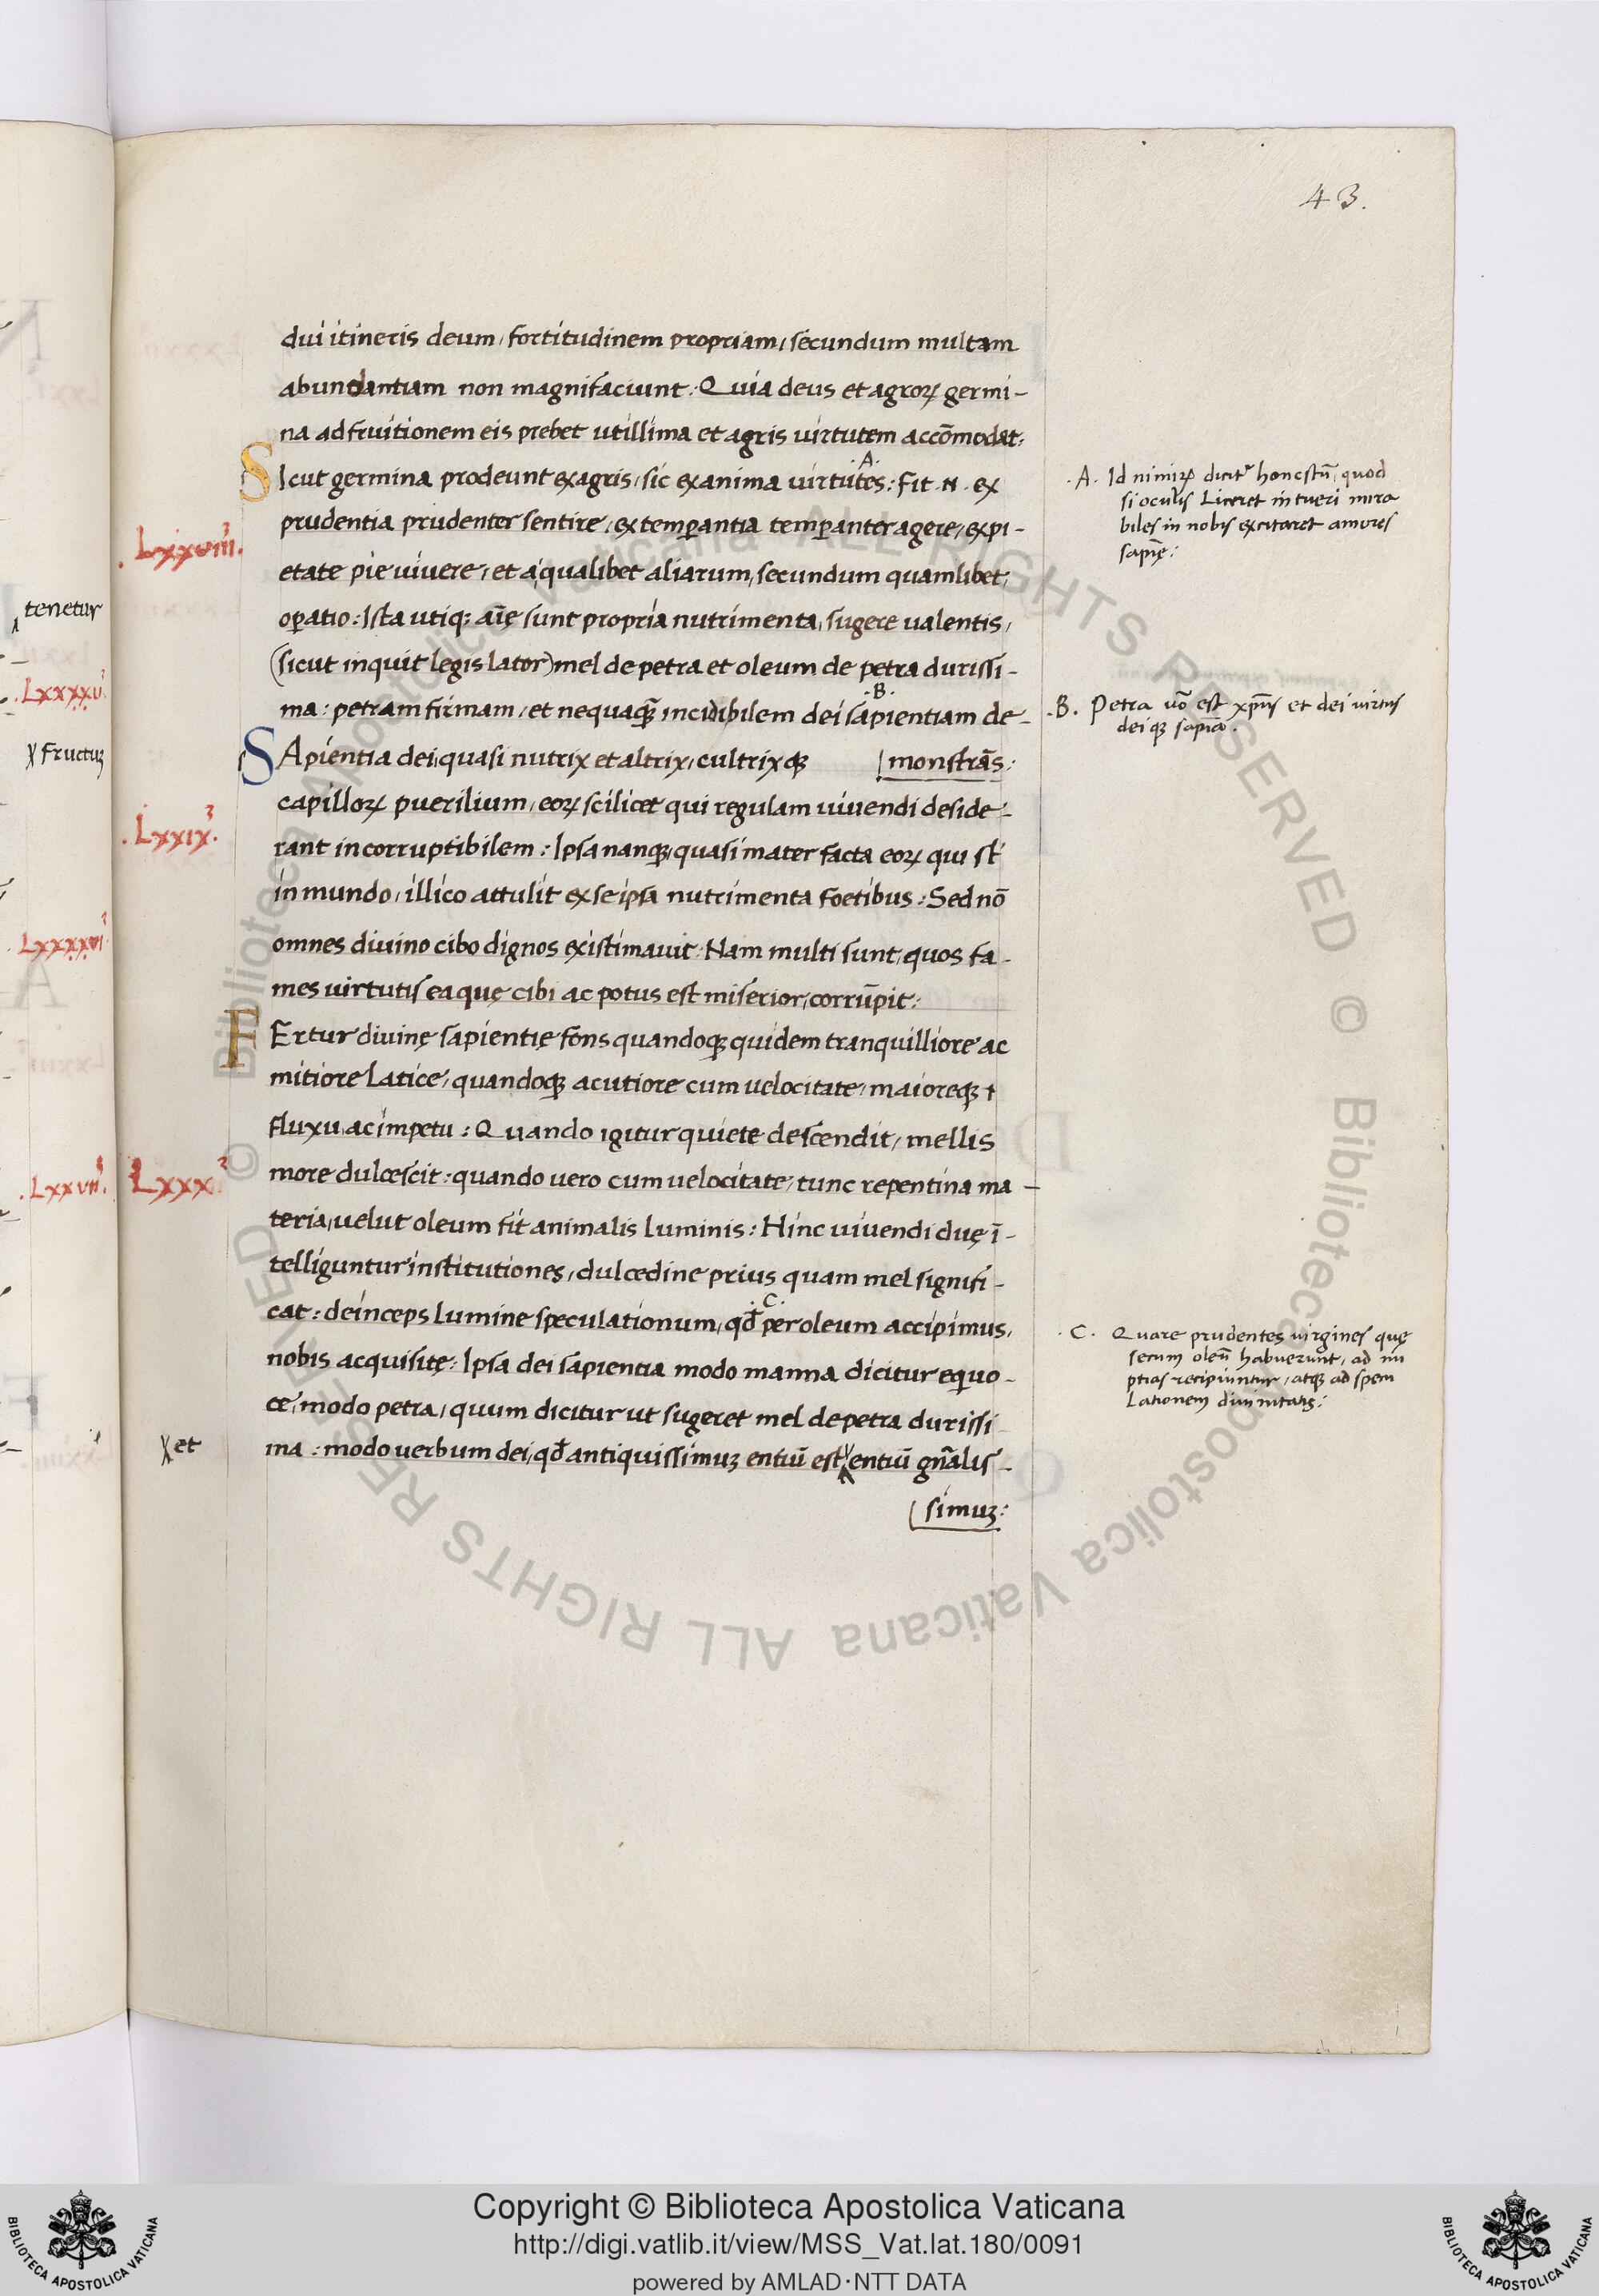 43.
dui itineris deum, fortitudinem propriam, secundum multam
abundantiam non magnifaciunt. Quia deus et agroꝝ germi-
na ad fruitionem eis prebet utillima et agris uirtutem accōmodat:
SIcut germina prodeunt ex agris, sic ex anima uirtutes: Fit .N. ex
.A.
prudentia prudenter sentire, ex temꝑantia temꝑanter agere, ex pi-
etate pie uiuere, et a qualibet aliarum, secundum quamlibet,
oꝑatio: Ista utiqꝫ aīę sunt propria nutrimenta, sugere ualentis,
(sicut inquit legis lator) mel de petra et oleum de petra durissi-
ma: petram firmam, et nequaqꝫ̄ incidibilem dei sapientiam de-
.B.
monstrās:
SApientia dei, quasi nutrix et altrix, cultrixqꝫ
capilloꝝ puerilium, eoꝝ scilicet qui regulam uiuendi deside-
rant incorruptibilem: Ipsa nanqꝫ, quasi mater facta eoꝝ qui st̄
in mundo, illico attulit ex se ipsa nutrimenta foetibus: Sed nō
omnes diuino cibo dignos existimauit: Nam multi sunt, quos fa-
mes uirtutis ea quę cibi ac potus est miserior, corrūpit:
FErtur diuinę sapientię fons quandoqꝫ quidem tranquilliore ac
mitiore latice, quandoqꝫ acutiore cum uelocitate, maioreqꝫ
fluxu, ac impetu: Quando igitur quiete descendit, mellis
more dulcescit: quando uero cum uelocitate, tunc repentina ma-
teria, uelut oleum fit animalis luminis: Hinc uiuendi duę ī-
telliguntur institutiones, dulcedine prius quam mel signifi-
cat: deinceps lumine speculationum, qđ per oleum accipimus,
.C.
nobis acquisitę: Ipsa dei sapientia modo manna dicitur equo-
ce, modo petra, quum dicitur ut sugeret mel de petra durissi
ma: modo uerbum dei, qđ antiquissimuꝫ entiū est entiū gn̄alis-
simuꝫ:
.Lxxviii.
.Lxxix.
Lxxx.
et
.A. Id nimiꝝ dicit᷑ honestū, quod
si oculis liceret intueri mira
biles in nobis excitaret amores
sapīę:
.B. Petra uō est xp̄us et dei uirtus
dei qꝫ sapīa.
.C. Quare prudentes uirgines quę
secum oleū habuerunt, ad nu
ptias recipiuntur, atqꝫ ad spem
Lationem diuinitatis:
tenetur
.Lxxxxv.
fructuꝫ
Lxxxxvi
.Lxxvii.
© Biblioteca Apostolica Vaticana ALL RIGHTS RESERVED © Biblioteca Apostolica Vaticana ALL RIGHTS RESERVED
Copyright © Biblioteca Apostolica Vaticana
http://digi.vatlib.it/view/MSS_Vat.lat.180/0091
powered by AMLAD·NTT DATA
BIBLIOTECA APOSTOLICA VATICANA
BIBLIOTECA APOSTOLICA VATICANA